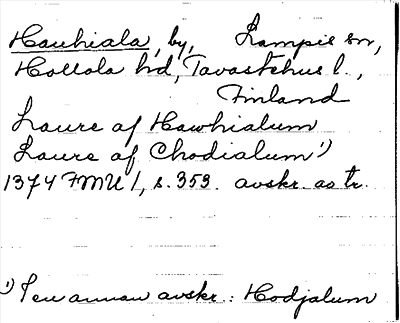 Hauhiala, by, Lampis sn,
Hollola hd, Tavastehus l.,
Finland
Laure af Hawhialum
Laure af Chodialum¹)
1374 FMU 1, s. 353. avskr. as tr.
¹) I en annan avskr.: Hodjalum